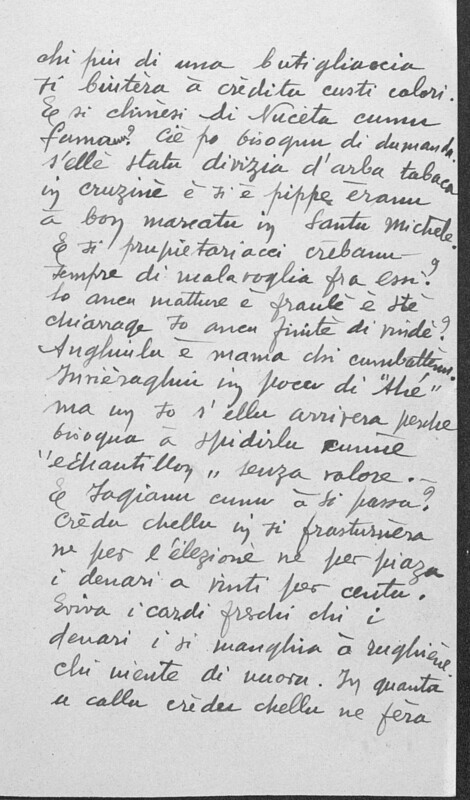 chi piu di una butigliaccia
si biutèra à crèditu custi calori.
E si chinèsi di Nuceta cumu
fuman? Ciè po bisognu di dumanda
s'ellè statu divizia d'arba tabaca
in cruzinè è si è pippe èranu
à bon marcatu in Santu Michele.
E si pruprietariacci crèbanu
sempre di malavoglia fra essi?
So ancu matture è fraulè è stè
chiarrage so ancu finite di vindè?
Anghiulu è mama chi cumbattenu.
Invièraghiu in pocu di "Thé"
ma un so s'ellu arrivera perche
bisogna à spidirlu cumè
"echantillon" senza valore. -
E Sagianu cumu à si passa?
Crèdu chellu un si frasturnèra
ne per l'élezione ne per piazza
i denari a vinti per centu.
Eviva i cardi freschi chi i
denari i si manghia à rughiène
chi niente di nuovu. In quantu
u callu crèdu chellu ne fèra